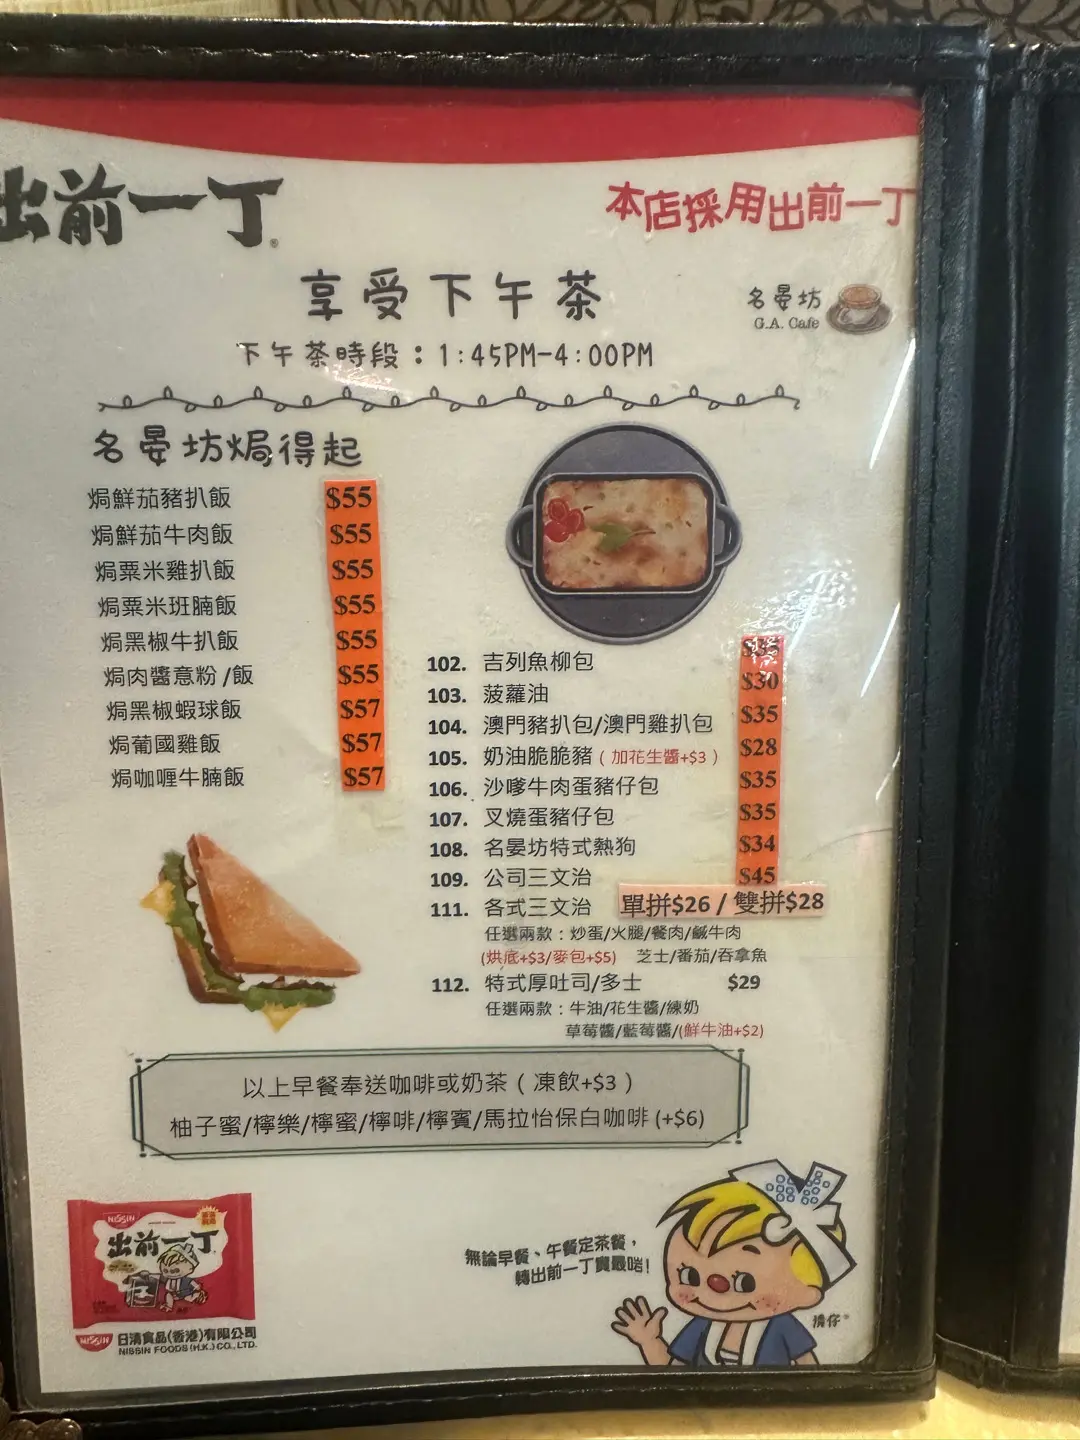 出前一丁
本店採用出前一丁
享受下午茶
名晏坊
G.A. Cafe
下午茶時段：1:45PM-4:00PM
名晏坊焗得起
焗鮮茄豬扒飯 $55
焗鮮茄牛肉飯 $55
焗粟米雞扒飯 $55
焗粟米班腩飯 $55
焗黑椒牛扒飯 $55
焗肉醬意粉/飯 $55
焗黑椒蝦球飯 $57
焗葡國雞飯 $57
焗咖喱牛腩飯 $57
102. 吉列魚柳包 $35
103. 菠蘿油 $30
104. 澳門豬扒包/澳門雞扒包 $35
105. 奶油脆脆豬（加花生醬+$3） $28
106. 沙嗲牛肉蛋豬仔包 $35
107. 叉燒蛋豬仔包 $35
108. 名晏坊特式熱狗 $34
109. 公司三文治 $45
111. 各式三文治 單拼$26 / 雙拼$28
任選兩款：炒蛋/火腿/餐肉/鹹牛肉
(烘底+$3/麥包+$5) 芝士/番茄/吞拿魚
112. 特式厚吐司/多士 $29
任選兩款：牛油/花生醬/練奶
草莓醬/藍莓醬/(鮮牛油+$2)
以上早餐奉送咖啡或奶茶（凍飲+$3）
柚子蜜/檸樂/檸蜜/檸啡/檸賓/馬拉怡保白咖啡(+$6)
NISSIN
出前一丁
NISSIN 日清食品(香港)有限公司
NISSIN FOODS (H.K.) CO., LTD.
無論早餐、午餐定茶餐，
轉出前一丁實最啱！
清仔